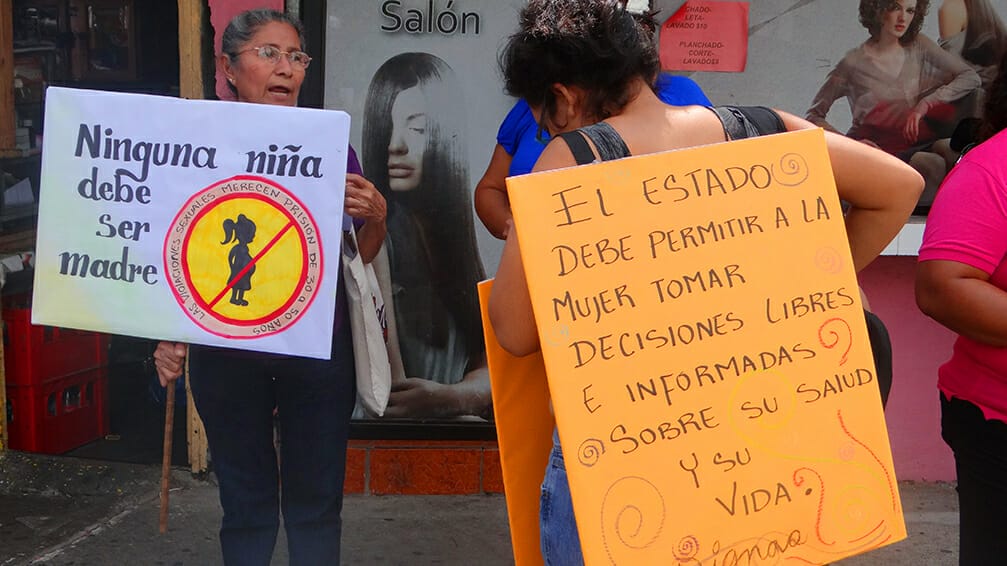 Salón
PLANCHADO-
LETA-
LAVADO $10
PLANCHADO-
CORTE-
LAVADO$
Ninguna niña
debe
ser
madre
LAS VIOLACIONES SEXUALES MERECEN PRISIÓN DE 30 A 50 AÑOS
EL ESTADO
DEBE PERMITIR A LA
MUJER TOMAR
DECISIONES LIBRES
E INFORMADAS
SOBRE SU SALUD
Y SU
VIDA.